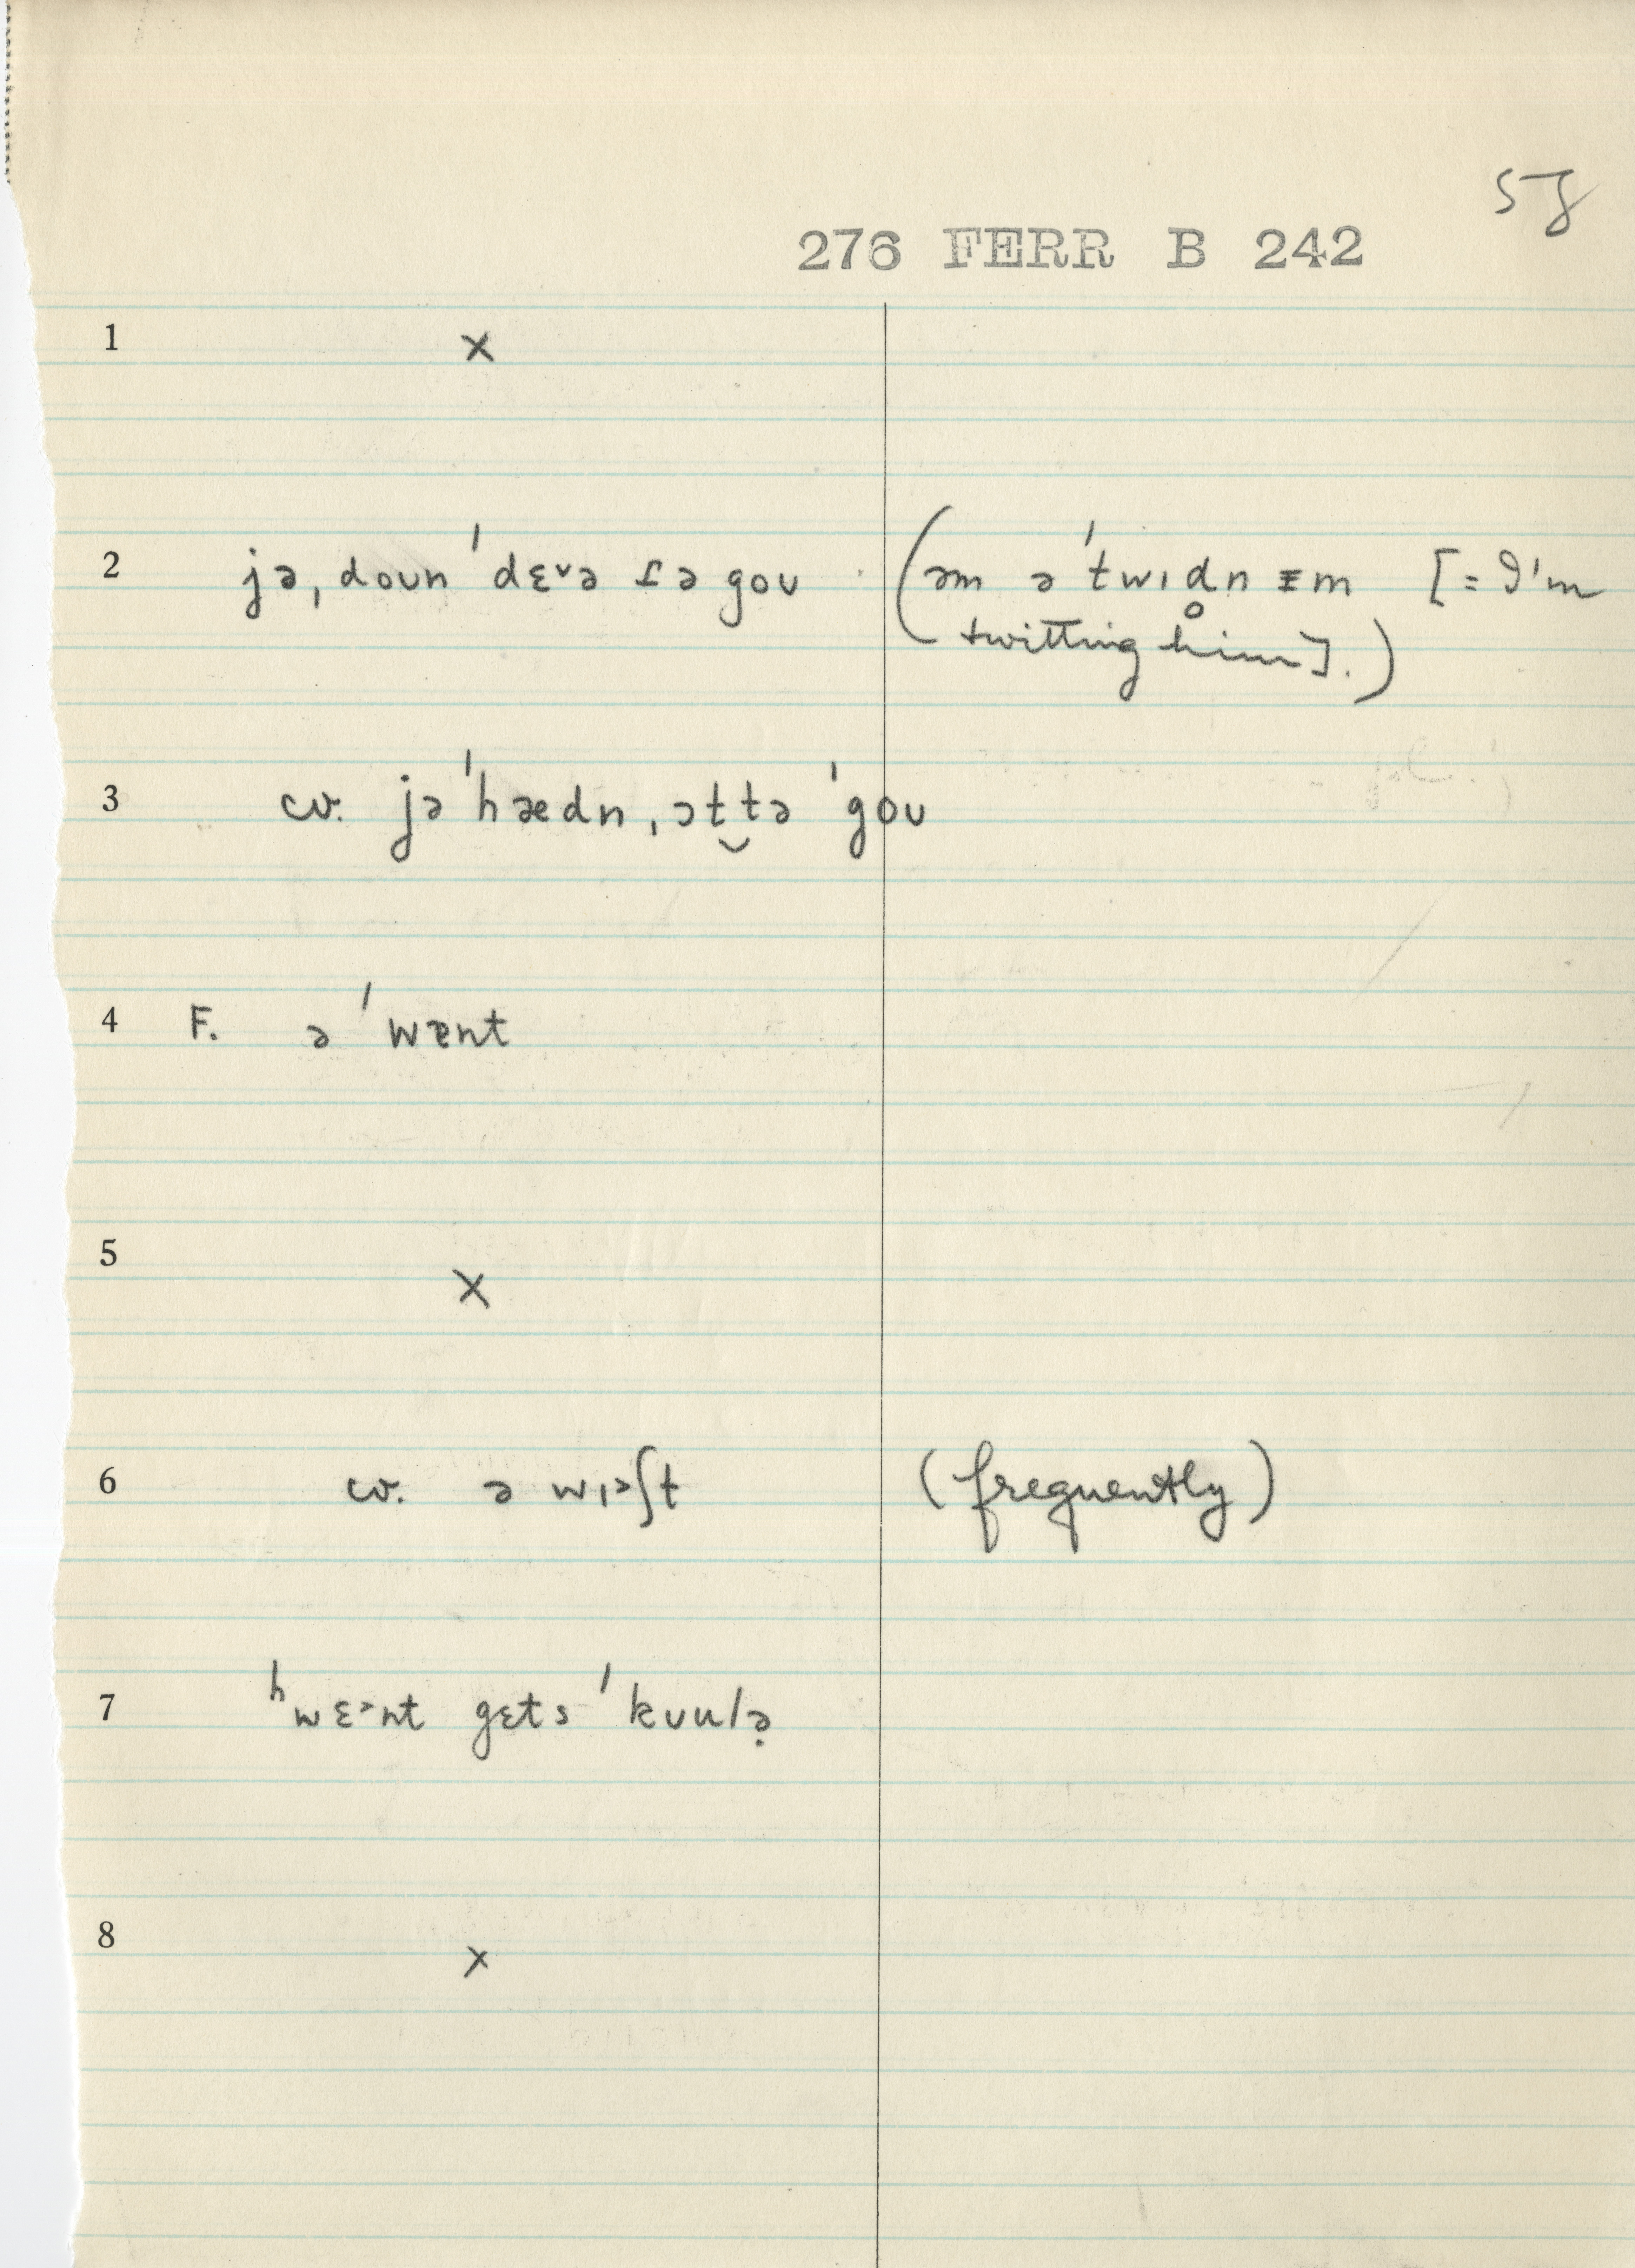 57
276 FERR B 242
1 ×
2 jə, doun ˈdɛ˅ə ɾə goʊ (əm əˈtwɪdn̥ ᵻm [= I'm
twitting him].)
3 cv. jəˈhædn, ɔt‿tə ˈgoʊ
4 F. əˈwɐnt
5 ×
6 cv. ə wɪ˃ʃt (frequently)
7 ʰwɛ˃nt gɛts ˈkʊulə̣
8 ×